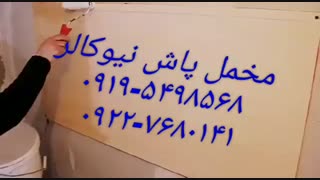 مخمل پاش نیوکالر
۰۹۱۹-۵۴۹۸۵۶۸
۰۹۲۲-۷۶۸۰۱۴۱